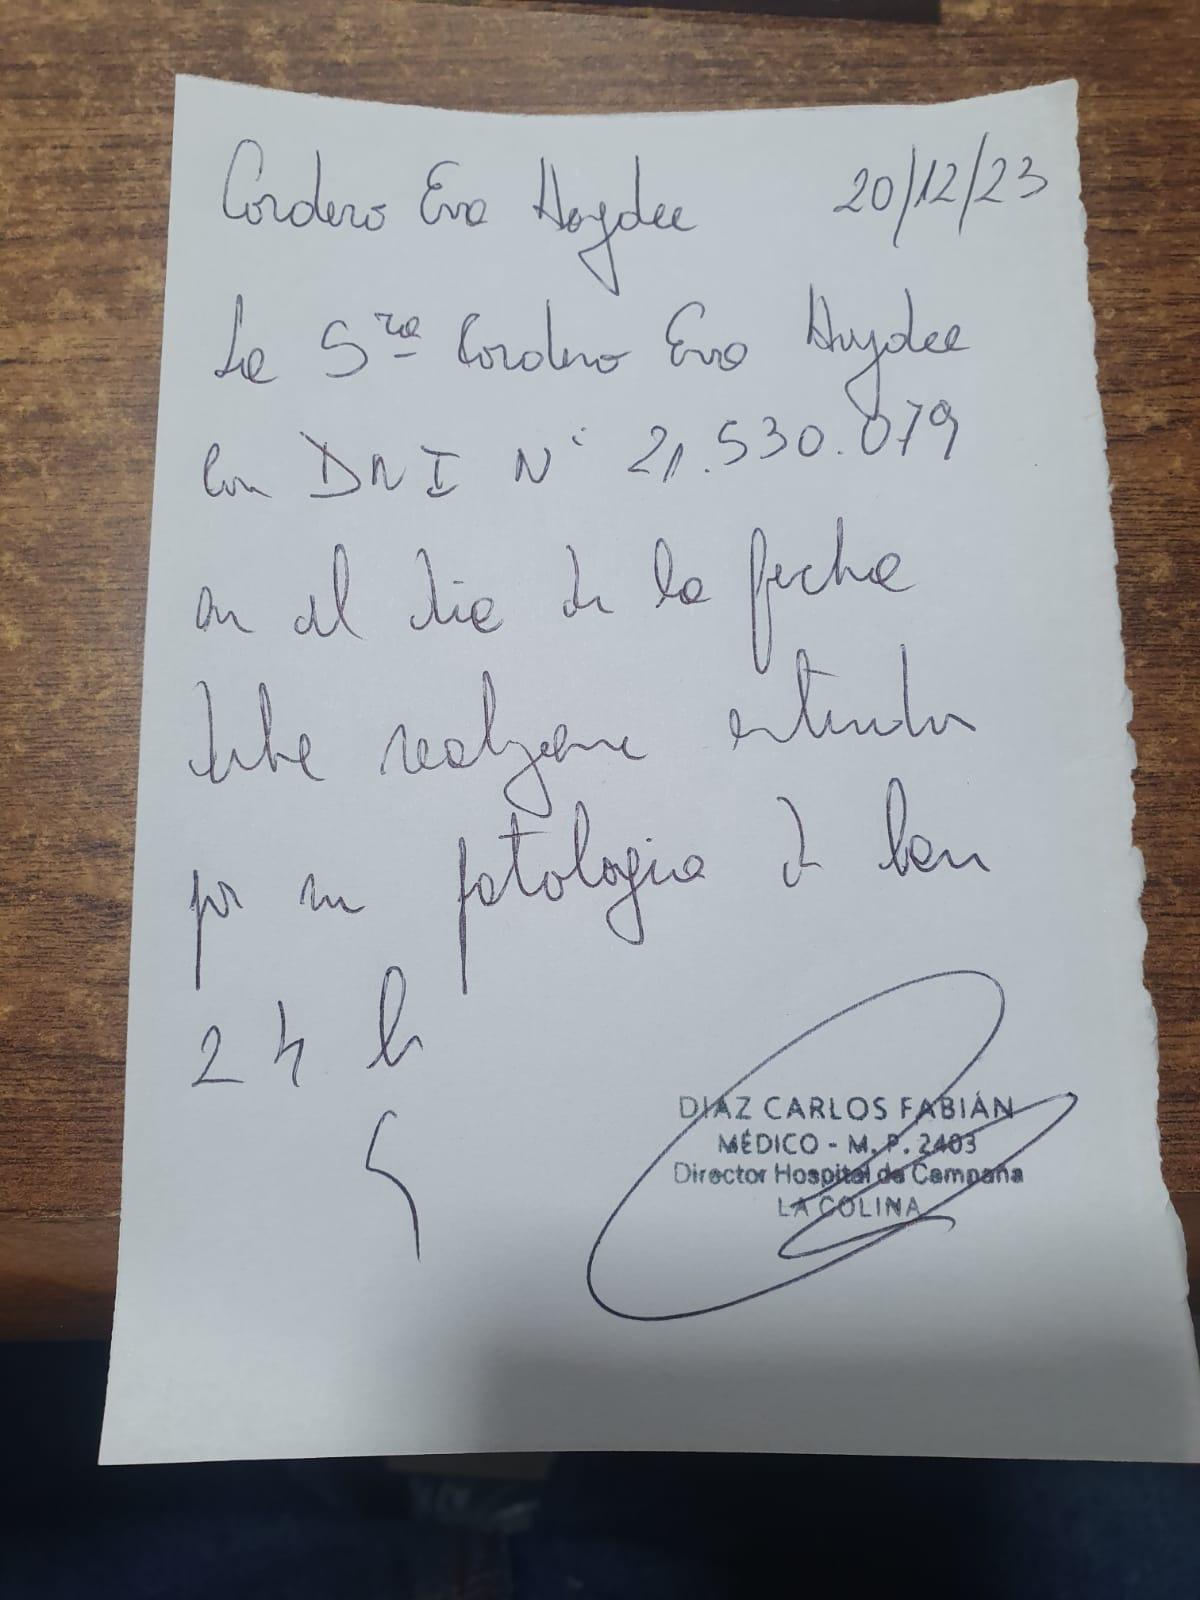 Cordero Eva Haydee 20/12/23
La Sra Cordero Eva Haydee
Con DNI N° 21.530.079
en el día de la fecha
debe realizarse estudios
por su patología de base
24 h
DIAZ CARLOS FABIÁN
MÉDICO - M. P. 2403
Director Hospital de Campaña
LA COLINA